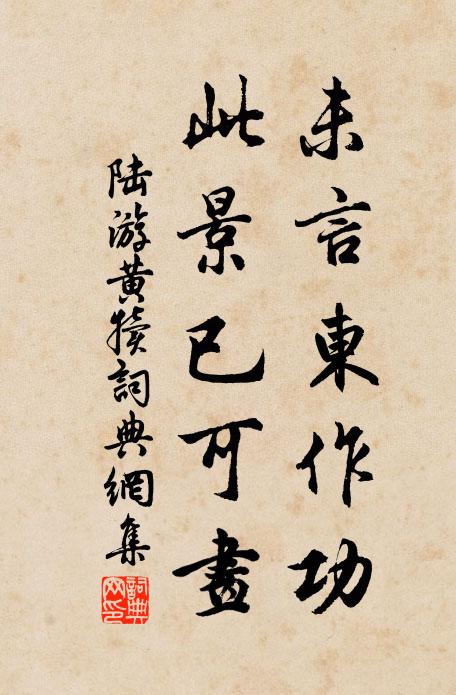 未言東作功
此景已可畫
陸游黃犢詞典網集
詞典
網印